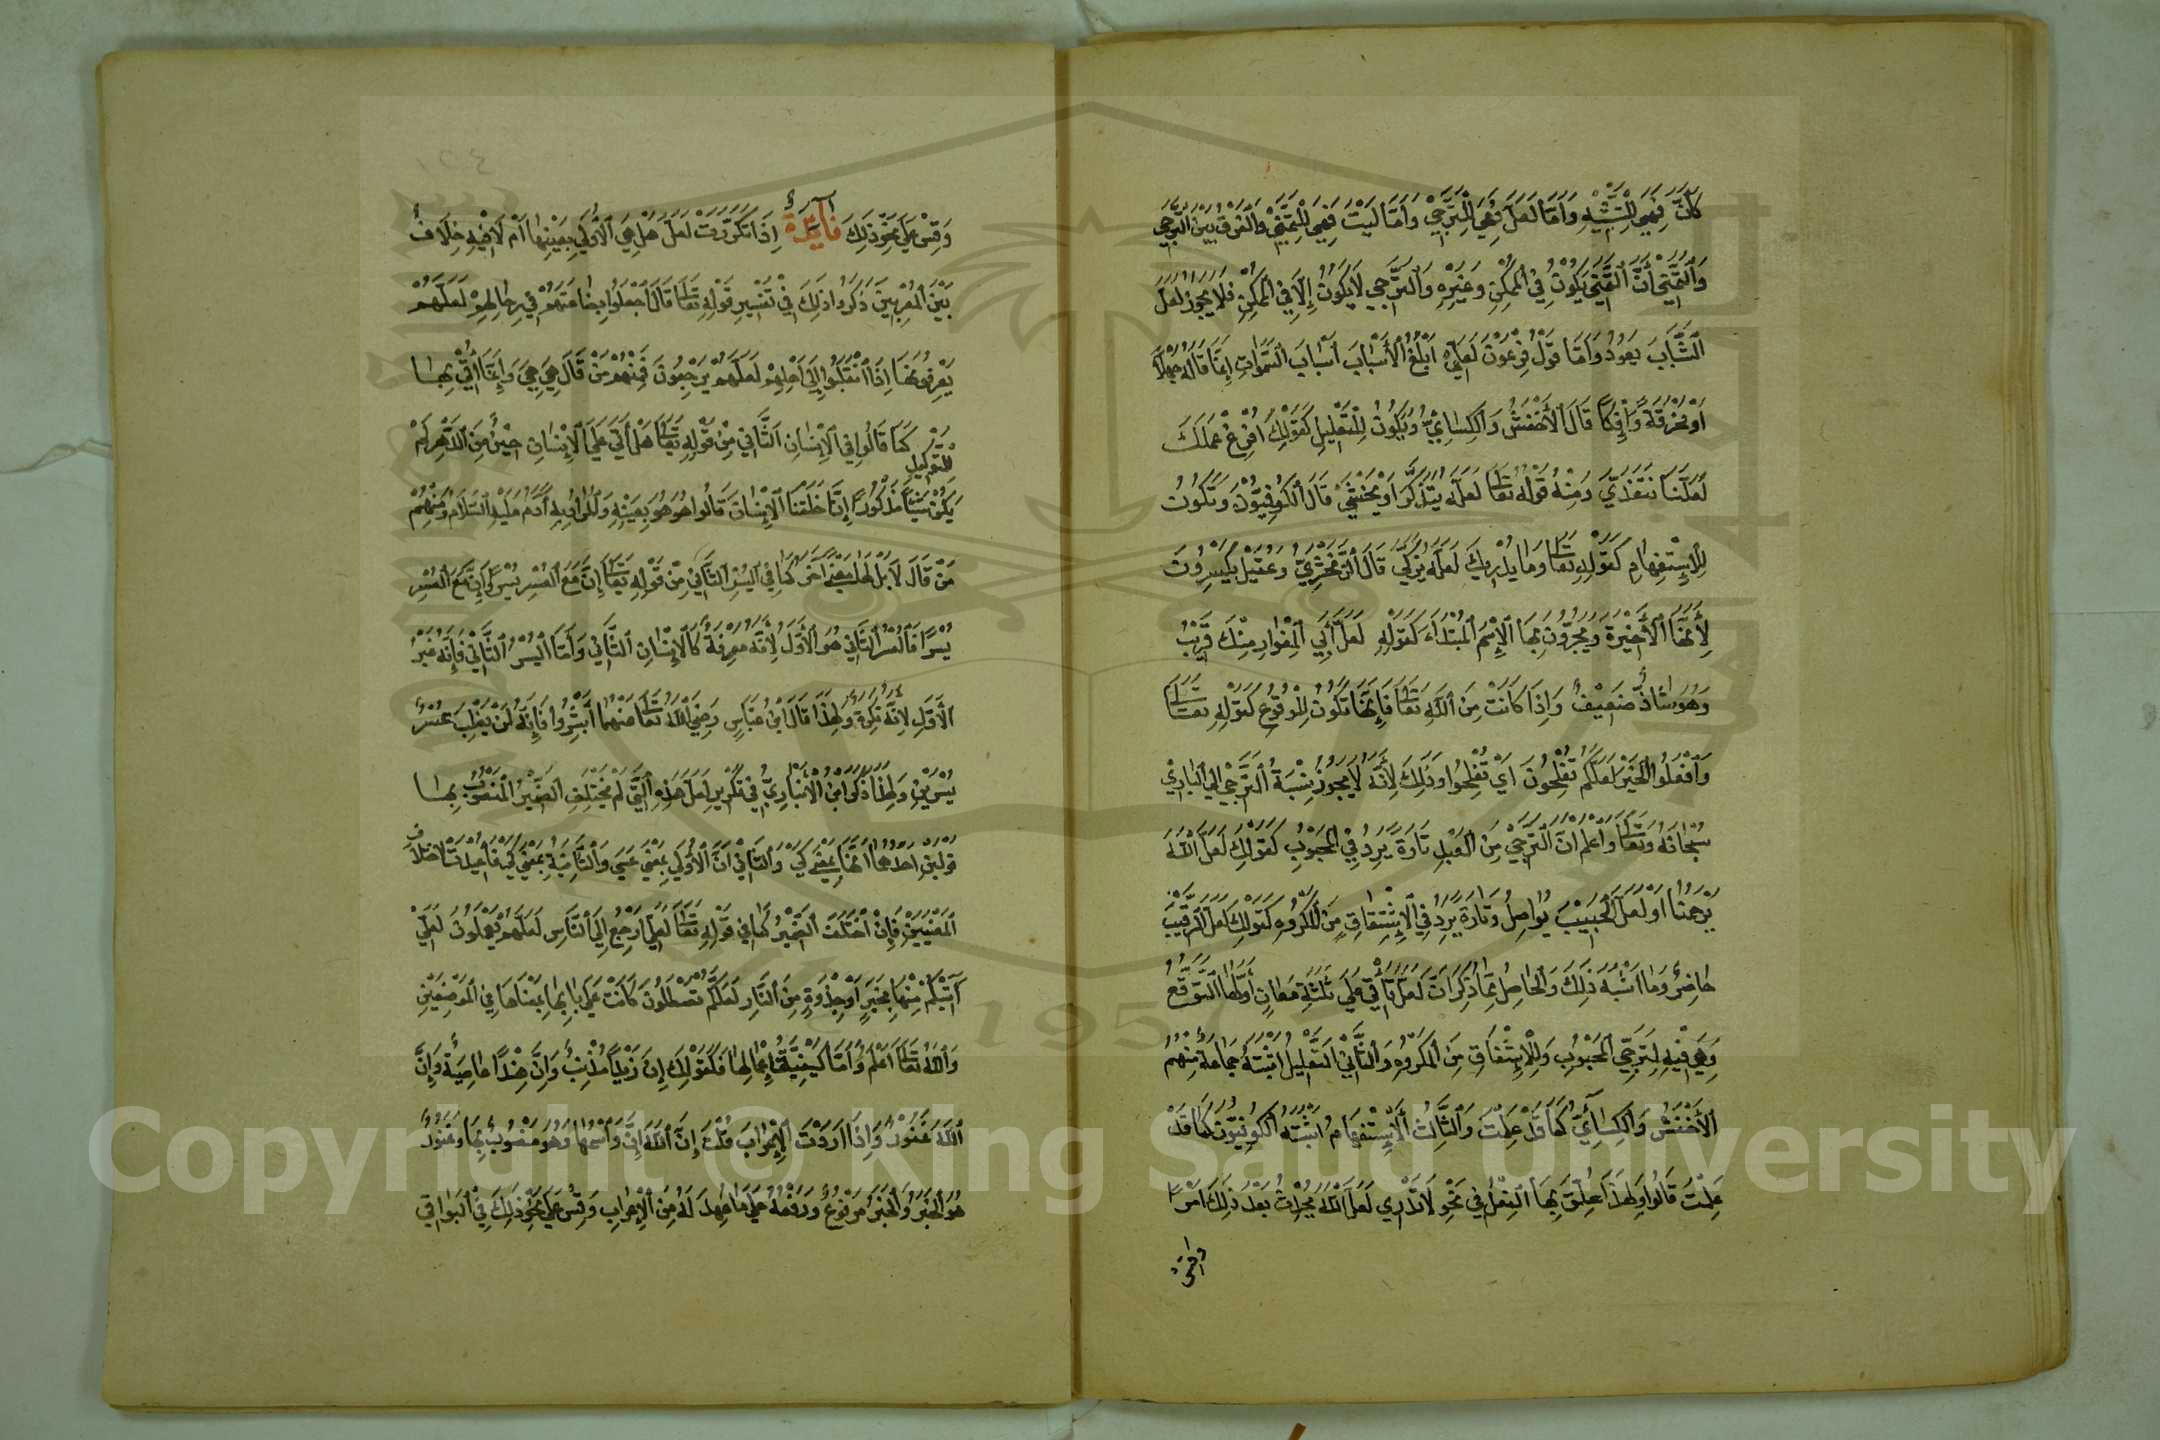 كَأَنَّ فَهِيَ لِلتَّشْبِيْهِ وَأَمَّا لَعَلَّ فَهِيَ لِلتَّرَجِّيْ وَأَمَّا لَيْتَ فَهِيَ لِلتَّمَنِّيْ وَالْفَرْقُ بَيْنَ التَّرَجِّي
وَالتَّمَنِّيْ أَنَّ التَّمَنِّيَ يَكُوْنُ فِيْ الْمُمْكِنِ وَغَيْرِهِ وَالتَّرَجِّي لَا يَكُوْنُ إِلَّا فِيْ الْمُمْكِنِ فَلَا يَجُوْزُ لَعَلَّ
الشَّبَابَ يَعُوْدُ وَأَمَّا قَوْلُ فِرْعَوْنَ لَعَلِّيْ أَبْلُغُ الْأَسْبَابَ أَسْبَابَ السَّمٰوَاتِ إِنَّمَا قَالَهُ جَهْلًا
أَوْ مَخْرَقَةً وَإِفْكًا قَالَ الْأَخْفَشُ وَالْكِسَائِيُّ وَيَكُوْنُ لِلتَّعْلِيْلِ كَقَوْلِكَ اُفْرُغْ عَمَلَكَ
لَعَلَّنَا نَتَغَدَّيْ وَمِنْهُ قَوْلُهُ تَعَالَى لَعَلَّهُ يَتَذَكَّرُ أَوْ يَخْشَيْ قَالَ الْكُوْفِيُّوْنَ وَتَكُوْنُ
لِلْإِسْتِفْهَامِ كَقَوْلِهِ تَعَالَى وَمَا يُدْرِيْكَ لَعَلَّهُ يَزَّكَّيْ قَالَ الزَّمَخْشَرِيُّ وَعُقَيْلٌ يَكْسِرُوْنَ
لَامَهَا الْأَخِيْرَةَ وَيَجُرُّوْنَ بِهَا الْإِسْمَ الْمُبْتَدَأَ كَقَوْلِهِ لَعَلَّ أَبِي الْمِغْوَارِ مِنْكَ قَرِيْبُ
وَهُوَ شَاذٌّ ضَعِيْفٌ وَإِذَا كَانَتْ مِنَ اللّٰهِ تَعَالَى فَإِنَّهَا تَكُوْنُ لِلْوُقُوْعِ كَقَوْلِهِ تَعَالَى
وَافْعَلُوا الْخَيْرَ لَعَلَّكُمْ تُفْلِحُوْنَ أَيْ تُفْلِحُوا وَذٰلِكَ لِأَنَّهُ لَا يَجُوْزُ نِسْبَةُ التَّرَجِّيْ إِلَى الْبَارِيْ
سُبْحَانَهُ وَتَعَالَى وَاعْلَمْ أَنَّ التَّرَجِّيْ مِنَ الْعَبْدِ تَارَةً يَرِدُ فِيْ الْمَحْبُوْبِ كَقَوْلِكَ لَعَلَّ اللّٰهَ
يَرْحَمُنَا أَوْ لَعَلَّ الْحَبِيْبَ يُوَاصِلُ وَتَارَةً يَرِدُ فِيْ الْإِشْتِفَاقِ مِنَ الْمَكْرُوْهِ كَقَوْلِكَ لَعَلَّ الرَّقِيْبَ
حَاضِرٌ وَمَا أَشْبَهَ ذٰلِكَ وَالْحَاصِلُ مِمَّا ذُكِرَ أَنَّ لَعَلَّ تَأْتِيْ عَلَى ثَلَثَةِ مَعَانٍ أَوَّلُهَا التَّوَقُّعُ
وَهِيَ فِيْهِ لِتَرَجِّيْ الْمَحْبُوْبِ وَلِلْإِشْفَاقِ مِنَ الْمَكْرُوْهِ وَالثَّانِيْ التَّعْلِيْلُ أَثْبَتَهُ جَمَاعَةٌ مِنْهُمُ
الْأَخْفَشُ وَالْكِسَائِيُّ كَمَا قَدْ عَلِمْتَ وَالثَّالِثُ الْإِسْتِفْهَامُ أَثْبَتَهُ الْكُوْفِيُّوْنَ كَمَا قَدْ
عَلِمْتَ قَالُوا وَلِهٰذَا عُلِّقَ بِهَا الْفِعْلُ فِي نَحْوِ لَا تَدْرِي لَعَلَّ اللّٰهَ يُحْدِثُ بَعْدَ ذٰلِكَ أَمْرًا
وقس
وَقِسْ عَلَى نَحْوِ ذٰلِكَ فَائِدَةٌ إِذَا تَكَرَّرَتْ لَعَلَّ هَلْ هِيَ الْأُوْلَى بِعَيْنِهَا أَمْ لَا فِيْهِ خِلَافٌ
بَيْنَ الْمُعْرِبِيْنَ ذَكَرُوْا ذٰلِكَ فِيْ تَفْسِيْرِ قَوْلِهِ تَعَالَى قَالَ اجْعَلُوا بِضَاعَتَهُمْ فِيْ رِحَالِهِمْ لَعَلَّهُمْ
يَعْرِفُوْنَهَا إِذَا انْقَلَبُوْا إِلَى أَهْلِهِمْ لَعَلَّهُمْ يَرْجِعُوْنَ فَمِنْهُمْ مَنْ قَالَ هِيَ هِيَ وَإِنَّمَا أُتِيَ بِهَا
للتوكيد كَمَا قَالُوا فِي الْإِنْسَانِ الثَّانِيْ مِنْ قَوْلِهِ تَعَالَى هَلْ أَتَى عَلَى الْإِنْسَانِ حِيْنٌ مِنَ الدَّهْرِ لَمْ
يَكُنْ شَيْئًا مَذْكُوْرًا إِنَّا خَلَقْنَا الْإِنْسَانَ قَالُوا هُوَ هُوَ بِعَيْنِهِ وَالْمُرَادُ بِهِ آدَمُ عَلَيْهِ السَّلَامُ وَمِنْهُمْ
مَنْ قَالَ لَا بَلْ لَهَا مَعْنًى آخَرُ كَمَا فِي الْيُسْرِ الثَّانِيْ مِنْ قَوْلِهِ تَعَالَى إِنَّ مَعَ الْعُسْرِ يُسْرًا إِنَّ مَعَ الْعُسْرِ
يُسْرًا فَالْعُسْرُ الثَّانِي هُوَ الْأَوَّلُ لِأَنَّهُ مَعْرِفَةٌ كَالْإِنْسَانِ الثَّانِيْ وَأَمَّا الْيُسْرُ الثَّانِيْ فَإِنَّهُ غَيْرُ
الْأَوَّلِ لِأَنَّهُ نَكِرَةٌ وَلِهٰذَا قَالَ ابْنُ عَبَّاسٍ رَضِيَ اللّٰهُ تَعَالَى عَنْهُمَا أَبْشِرُوا فَإِنَّهُ لَنْ يَغْلِبَ عُسْرٌ
يُسْرَيْنِ وَلِهٰذَا ذَكَرَ ابْنُ الْأَنْبَارِيِّ فِيْ تَكْرِيْرِ لَعَلَّ هٰذِهِ الَّتِيْ لَمْ يَخْتَلِفِ الضَّمِيْرُ الْمَنْصُوْبُ بِهَا
قَوْلَيْنِ أَحَدُهُمَا أَنَّهَا بِمَعْنَى كَيْ وَالثَّانِيْ أَنَّ الْأُوْلَى بِمَعْنَى عَسَى وَالثَّانِيَةَ بِمَعْنَى كَيْ فَأُعِيْدَتْ لِاخْتِلَافِ
الْمَعْنَيَيْنِ فَإِنْ اخْتَلَفَ الضَّمِيْرُ كَمَا فِي قَوْلِهِ تَعَالَى لَعَلِّيْ أَرْجِعُ إِلَى النَّاسِ لَعَلَّهُمْ يَعْلَمُوْنَ لَعَلِّيْ
آتِيْكُمْ مِنْهَا بِخَبَرٍ أَوْ جِذْوَةٍ مِنَ النَّارِ لَعَلَّكُمْ تَصْطَلُوْنَ كَانَتْ عَلَى بَابِهَا بِمَعْنَاهَا فِي الْمَوْضِعَيْنِ
وَاللّٰهُ تَعَالَى أَعْلَمُ وَأَمَّا كَيْفِيَّةُ إِعْمَالِهَا فَكَقَوْلِكَ إِنَّ زَيْدًا مُذْنِبٌ وَإِنَّ هِنْدًا عَاصِيَةٌ وَإِنَّ
اللّٰهَ غَفُوْرٌ وَإِذَا أَرَدْتَ الْإِعْرَابَ قُلْتَ إِنَّ اللّٰهَ إِنَّ وَاسْمُهَا وَهُوَ مَنْصُوْبٌ بِهَا وَغَفُوْرٌ
هُوَ الْخَبَرُ وَالْخَبَرُ مَرْفُوْعٌ وَرَفْعُهُ عَلَى مَا عُهِدَ لَهُ مِنَ الْإِعْرَابِ وَقِسْ عَلَى نَحْوِ ذٰلِكَ فِيْ الْبَوَاقِي
Copyright © King Saud University
1957